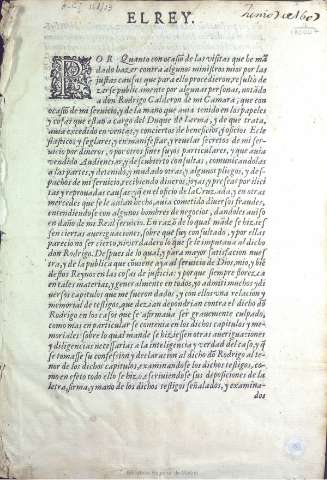 EL REY.
POR Quanto con ocasion de las visitas que he mã
dado hazer contra algunos ministros mios por las
justas causas que para ello procedieron, resulto de
zirse publicamente por algunas personas, notãdo
a don Rodrigo Calderon de mi Camara, que con
ocasion de mi seruicio, y de la mano que auia tenido en los papeles
y cosas que estan a cargo del Duque de Lerma, y de que trata,
auia excedido en ventas, y conciertos de beneficios, y oficios Ecle
siasticos, y seglares, y en manifestar, y reuelar secretos de mi ser-
uicio por dineros, o por otros fines suyos particulares, y que auia
vendido Audiencias, y descubierto consultas, comunicandolas
a las partes, y detenido, y mudado otras, y algunos pliegos, y des-
pachos de mi seruicio, recibiendo dineros, joyas, y preseas por ilici
tas y reprouadas causas: y ã en el oficio de la Cruzada, y en otras
mercedes que se le auian hecho, auia cometido diuersos fraudes,
entendiendose con algunos hombres de negocios, dandoles auisos
en daño de mi Real seruicio. En razõ de lo qual mãde se hiziessen
sen ciertas aueriguaciones, sobre que huuo consultado, y por ellas
parecio no ser cierto, ni verdadero lo que se le imputaua al dicho
don Rodrigo. Despues de lo qual, y para mayor satisfacion nues
tra, y de la publica que conuiene aya al seruicio de Dios, mio, y biẽ
destos Reynos en las cosas de justicia: y porque siempre florezca en
tales materias, y generalmente en todos, yo admiti muchos y di
uersos capitulos que me fueron dados, y con ellos vna relacion y
memorial de testigos, que dezian depondrian contra el dicho dõ
Rodrigo en los casos que se afirmaua ser grauemente culpado,
como mas en particular se contenia en los dichos capitulos y me-
moriales: sobre lo qual mãde se hiziessen otras aueriguaciones
y diligencias necessarias a la inteligencia y verdad del caso, y q̃
se tomasse su confession y declaracion al dicho dõ Rodrigo al te-
nor de los dichos capitulos, examinandose los dichos testigos, co-
mo en efeto todo ello se hizo, escriuiendose sus deposiciones de la
letra, firma, y mano de los dichos testigos señalados, y examina-
dos